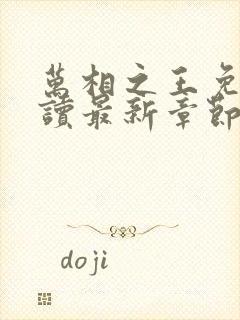 萬相之王免
讀最新章節
doji